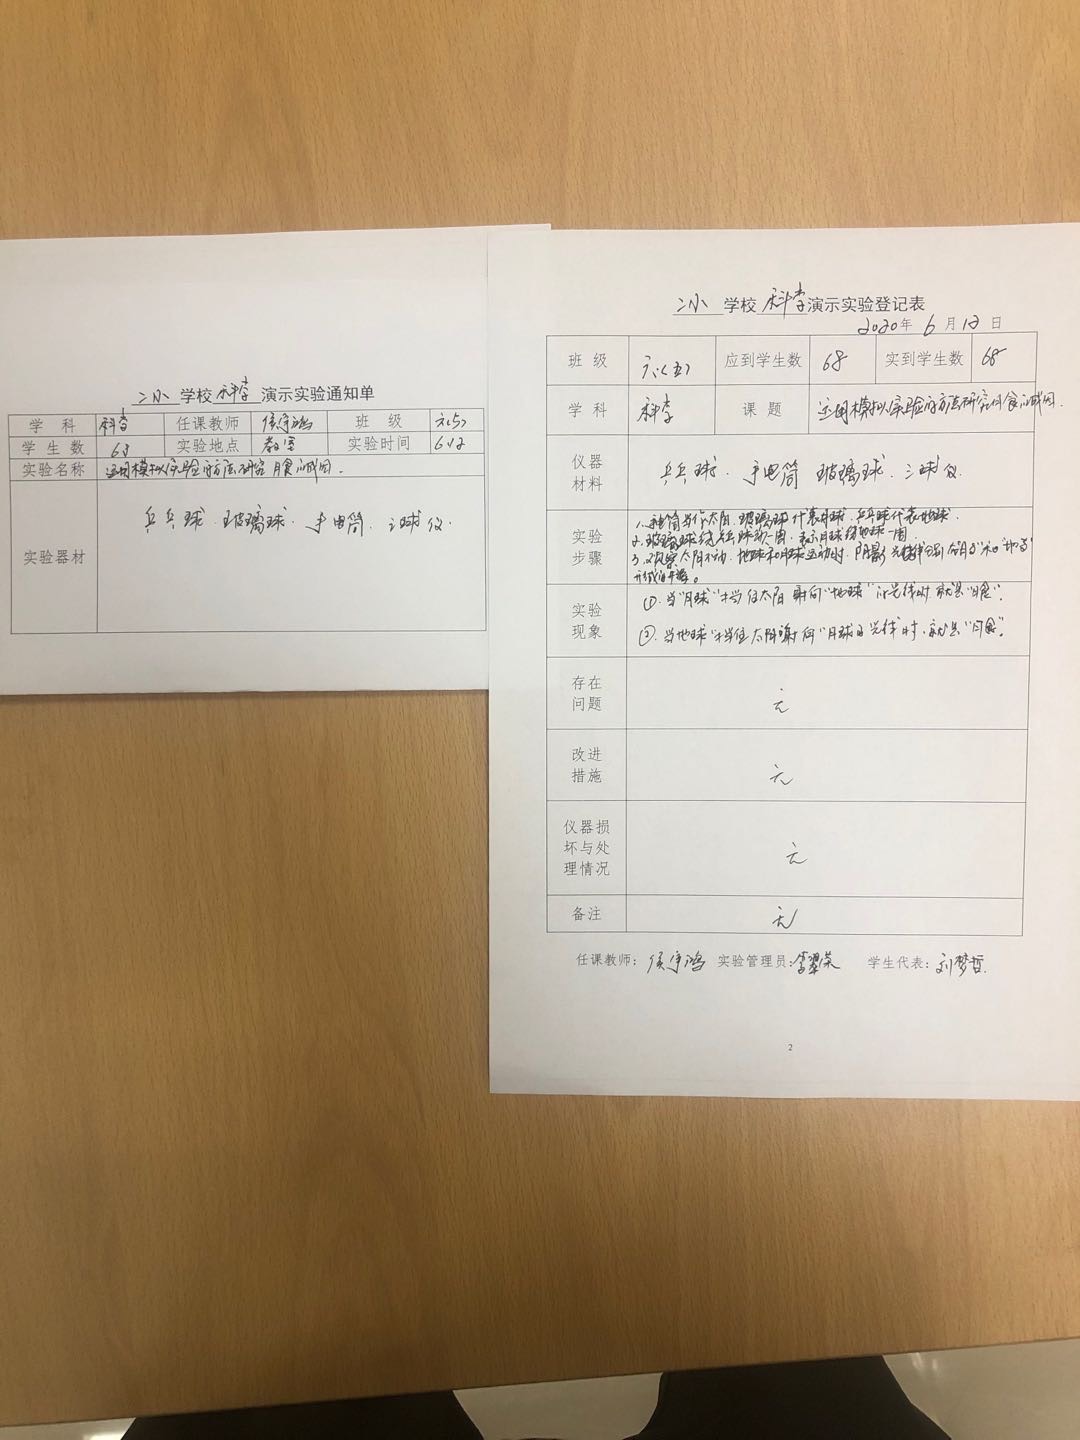 二小 学校 科学 演示实验通知单
学 科 科学 任课教师 侯宇鸿 班 级 六(5)
学 生 数 68 实验地点 教室 实验时间 6.12
实验名称 运用模拟实验的方法研究月食的成因.
实验器材 乒乓球. 玻璃球. 手电筒. 三球仪.
二小 学校 科学 演示实验登记表
2020年 6 月 12 日
班 级 六(五) 应到学生数 68 实到学生数 68
学 科 科学 课 题 运用模拟实验的方法研究月食的成因.
仪器材料 乒乓球. 手电筒 玻璃球. 三球仪.
实验步骤 1.手电筒当作太阳. 玻璃球代表月球. 乒乓球代表地球.
2.玻璃球绕乒乓球动一周. 表示月球绕地球一周.
3.观察太阳不动. 地球和月球运动时, 阴影
实验现象 ①.当"月球"挡住太阳射向"地球"的光线时就是"日食".
②.当"地球"挡住太阳射向"月球的光线"时.就是"月食".
存在问题 无
改进措施 无
仪器损坏与处理情况 无
备注 无
任课教师: 侯宇鸿 实验管理员: 李翠荣 学生代表: 刘梦哲.
2